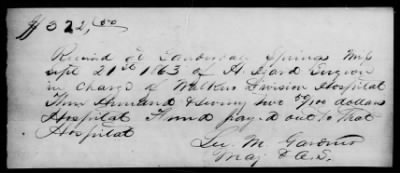 $322,50
Received at Canton Springs Miss
Sept 21st 1863 of H. Izard Surgeon
in charge of Walkers Division Hospital
Three hundred & twenty two 50/100 dollars
Hospital Fund payed out to that
Hospital
M. Gardner
Maj & C.S.